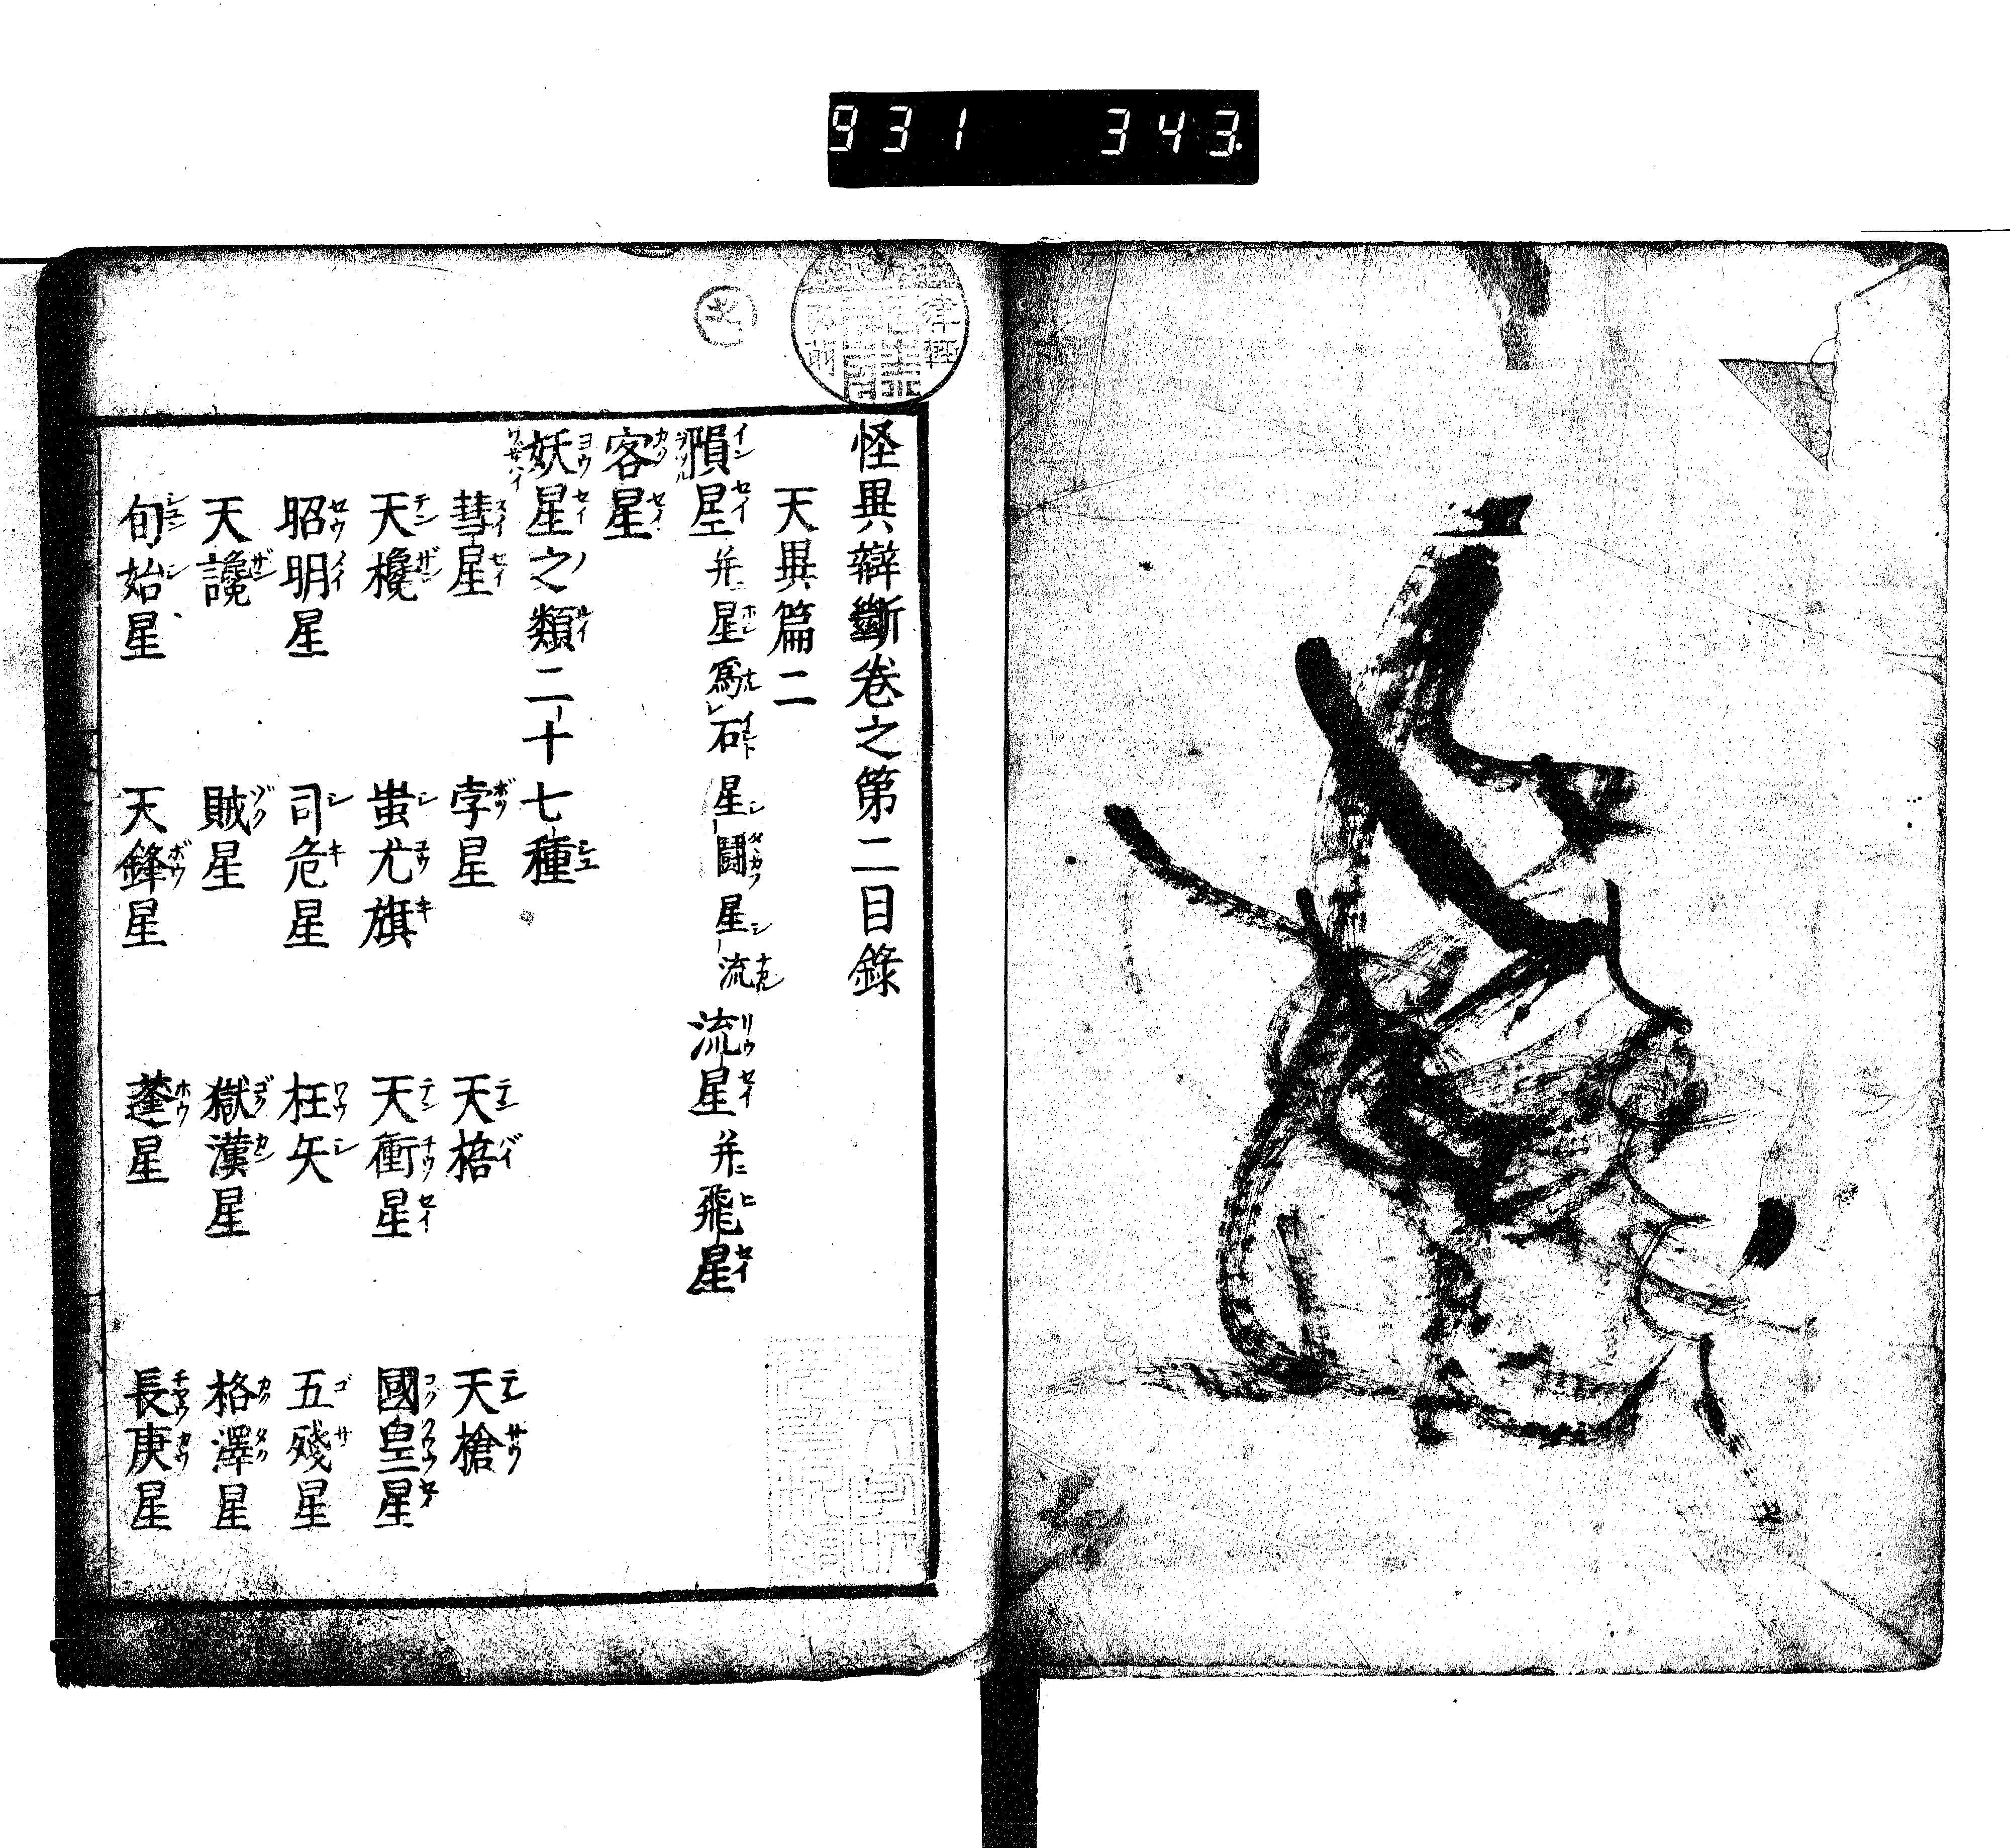 931 343
怪異辯斷卷之第二目錄
天異篇二
隕星 并 星爲石 星鬪 星流 流星 并 飛星
客星
妖星之類二十七種
彗星 孛星 天棓 天槍
天欃 蚩尤旗 天衝星 國皇星
昭明星 司危星 枉矢 五殘星
天讒 賊星 獄漢星 格澤星
旬始星 天鋒星 蓬星 長庚星